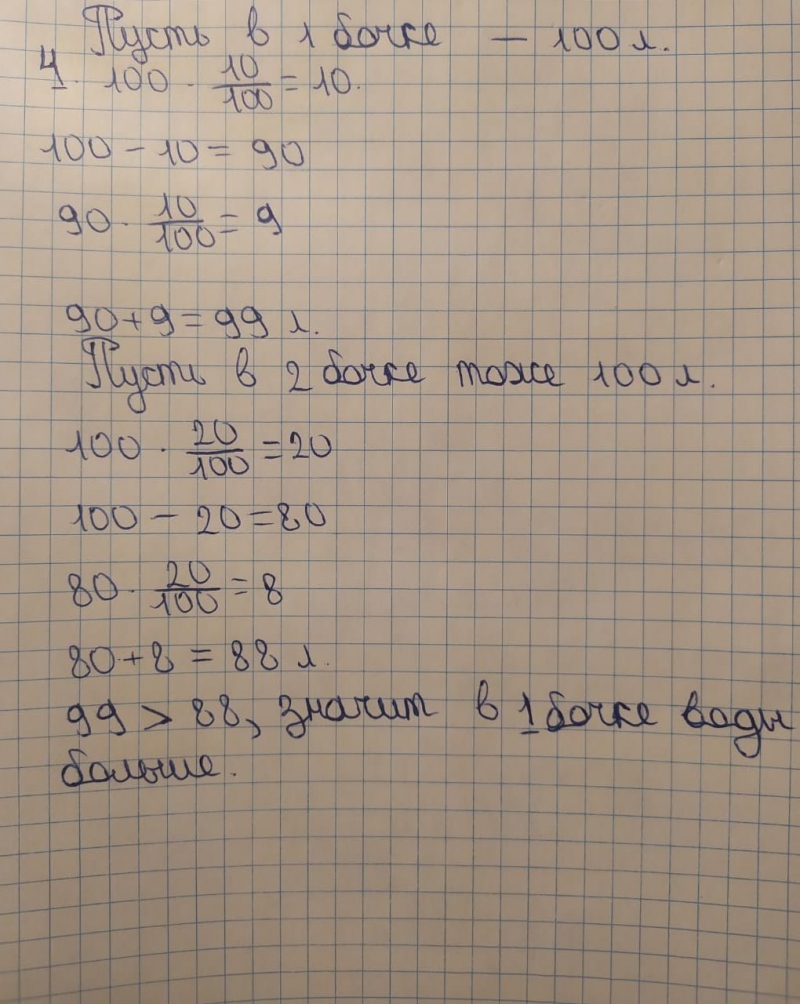 Пусть в 1 бочке — 100 л.
4. 100 · 10/100 = 10.
100 − 10 = 90
90 · 10/100 = 9
90 + 9 = 99 л.
Пусть в 2 бочке тоже 100 л.
100 · 20/100 = 20
100 − 20 = 80
80 · 20/100 = 8
80 + 8 = 88 л.
99 > 88, значит в 1 бочке воды
больше.